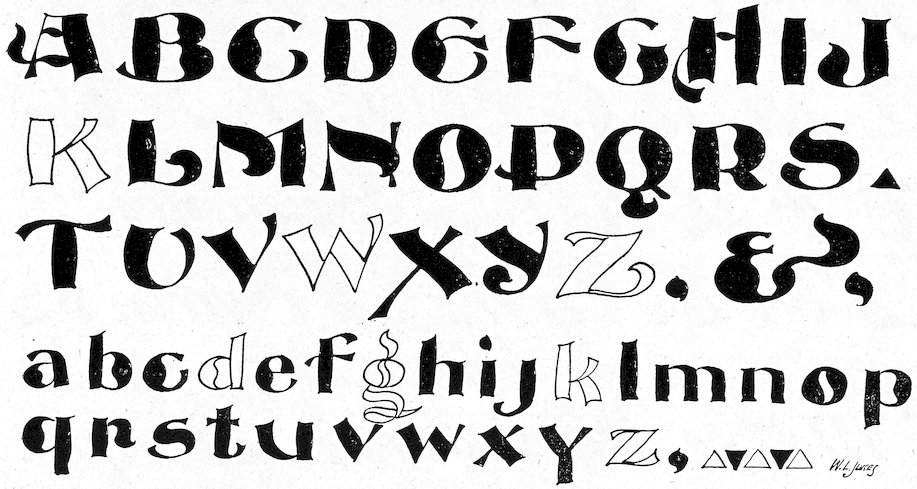 ABCDEFGHIJ
KLMNOPQRS.
TUVWXYZ,&,
abcdefghijklmnop
qrstuvwxyz,
W.L.